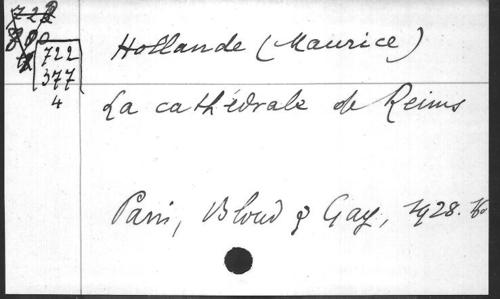 722
377
4
Hollande (Maurice)
La cathédrale de Reims
Paris, Bloud & Gay, 1928.